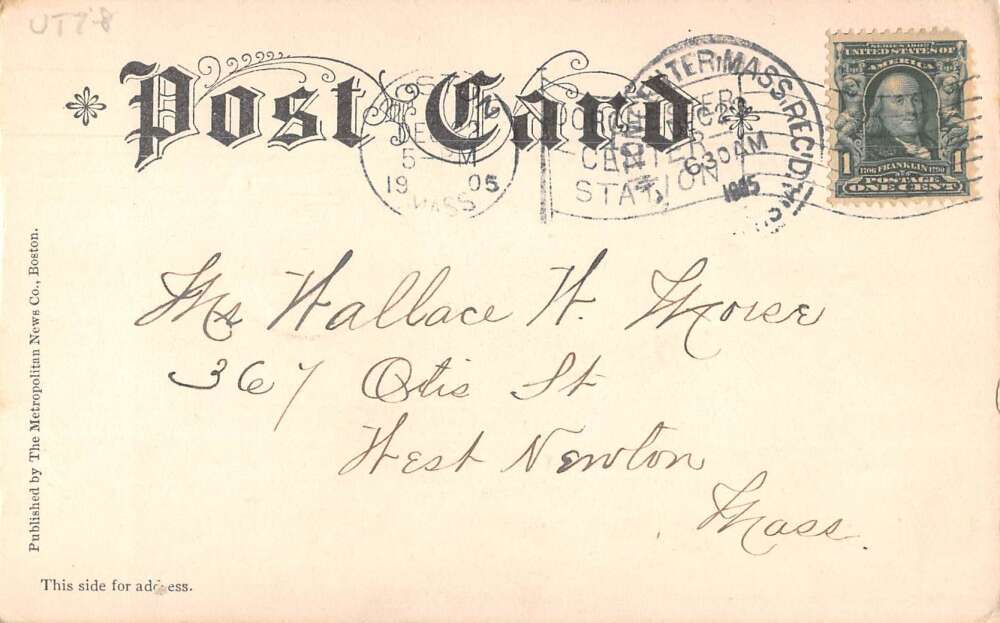 UT78
Post Card
DEC 2
5 — M
19 05
MASS
DORCHESTER
CENTER
STATION
MASS. REC'D.
2
6 30 AM
1905
SERIES 1902
UNITED STATES OF
AMERICA
1 1
1706 FRANKLIN 1790
POSTAGE
ONE CENT
Mr Wallace W. Morse
367 Otis St
West Newton
Mass.
Published by The Metropolitan News Co., Boston.
This side for address.